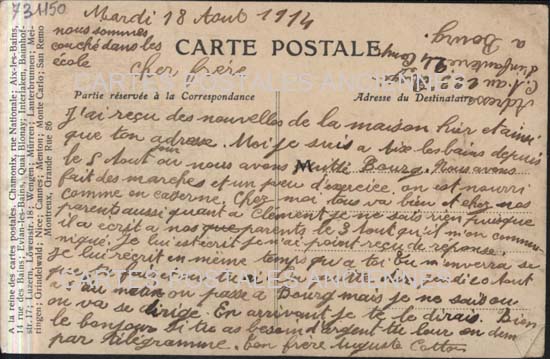 731150
Mardi 18 Aout 1914
nous sommes
couché dans les
école
CARTE POSTALE
Cher frère
Partie réservée à la Correspondance
Adresse du Destinataire
a Bourg
d'infanterie
au
Adresse
CARTES POSTALES ANCIENNES
J'ai reçu des nouvelles de la maison hier et ainsi
que ton adresse. Moi je suis a Aix-les-bains depuis
le 5 Aout ou nous avons quitté Bourg. Nous avons
fait des marches et un peu d'exercice, on est nourri
comme en caserne, Chez moi tous va bien et chez nos
parents aussi quant a Clement je ne sais rien puisque
il a ecrit a nos parents le 3 Aout qu'il m'on communi
niqué. Je lui ecrit je n'ai point reçu de réponse
je lui reçrit en même temps qu'a toi ou m'enverra se
CARTES POSTALES ANCIENNES
a on passe a Bourg mais je ne sais ou
on va se dirige. En arrivant je te le dirais. Bien
le bonjour si tu as besoin d'argent tu leur en dem
par télégramme. ton frère auguste Cotton
A la reine des cartes postales, Chamonix, rue Nationale; Aix-les-Bains,
14 rue des Bains; Evian-les-Bains, Quai Blonay; Interlaken, Bahnhof-
str. 17; Luzern, Löwenstr. 18; Wengen; Mürren; Lauterbrunnen; Mei-
ringen; Grindelwald; Nice; Cannes; Menton; Monte Carlo; San Remo
Montreux, Grande Rue 86